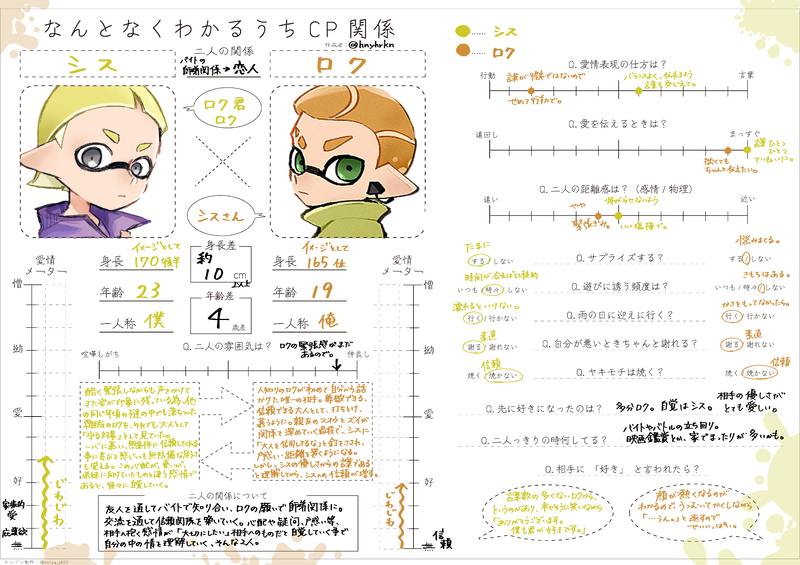 なんとなくわかるうちCP関係
作成者：@hnyhrkn
シス
二人の関係
バイトの
師弟関係→恋人
ロク
ロク君
ロク
シスさん
イメージとして
身長 170後半
年齢 23
一人称 僕
身長差
約
10 cm
以上
年齢差
4 歳差
イメージとして
身長 165位
年齢 19
一人称 俺
愛情
メーター
憎
拗
愛
好
じわじわ
家族的
愛
庇護欲
愛情
メーター
憎
拗
愛
好
じわじわ
信頼
Q.二人の雰囲気は？
ロクの緊張感がまだ
あるので。
喧嘩しがち
仲良し
二人の関係について
友人を通してバイトで知り合い、ロクの願いで師弟関係に。
交流を通して信頼関係を築いていく。心配や疑問、戸惑い等、
相手の抱く感情が「大切にしたい」相手のものだと自覚していく事で
自分の中の情を理解していく、そんな2人。
…… シス
…… ロク
Q.愛情表現の仕方は？
行動
言葉
言葉が得意ではないので
せめて行動で。
バランスよく、伝わるよう
言葉も交じえて。
Q.愛を伝えるときは？
遠回し
まっすぐ
言葉ひとつ
ひとつ
ていねいに。
拙くても
ちゃんと伝えたい。
Q.二人の距離感は？（感情／物理）
遠い
近い
やや
緊張ぎみ。
怖がらせないよう
いい塩梅で。
たまに
する／しない
Q.サプライズする？
悩みまくる。
する／しない
時間が合えば比較的
いつも／時々／
Q.遊びに誘う頻度は？
きもちはある。
いつも／時々／
濡れるといけない。
行く／行かない
Q.雨の日に迎えに行く？
かさをもってなかったら。
行く／行かない
素直
謝る／謝れない
Q.自分が悪いときちゃんと謝れる？
素直
謝る／謝れない
信頼
焼く／焼かない
Q.ヤキモチは焼く？
信頼
焼く／焼かない
Q.先に好きになったのは？
多分ロク。自覚はシス。
相手の優しさが
とても愛しい。
Q.二人っきりの時何してる？
バイトやバトルの立ち回り。
映画鑑賞とか、家でまったりが多いかも。
Q.相手に「好き」と言われたら？
言葉数の多くないロクから、
というのがあり、幸せそうに笑いながら
「ありがとうございます。
僕も君が好きです。」
顔が熱くなるのが
わかるので、うつむいてかくしながら
「…うん。」と返すので
せいいっぱい。